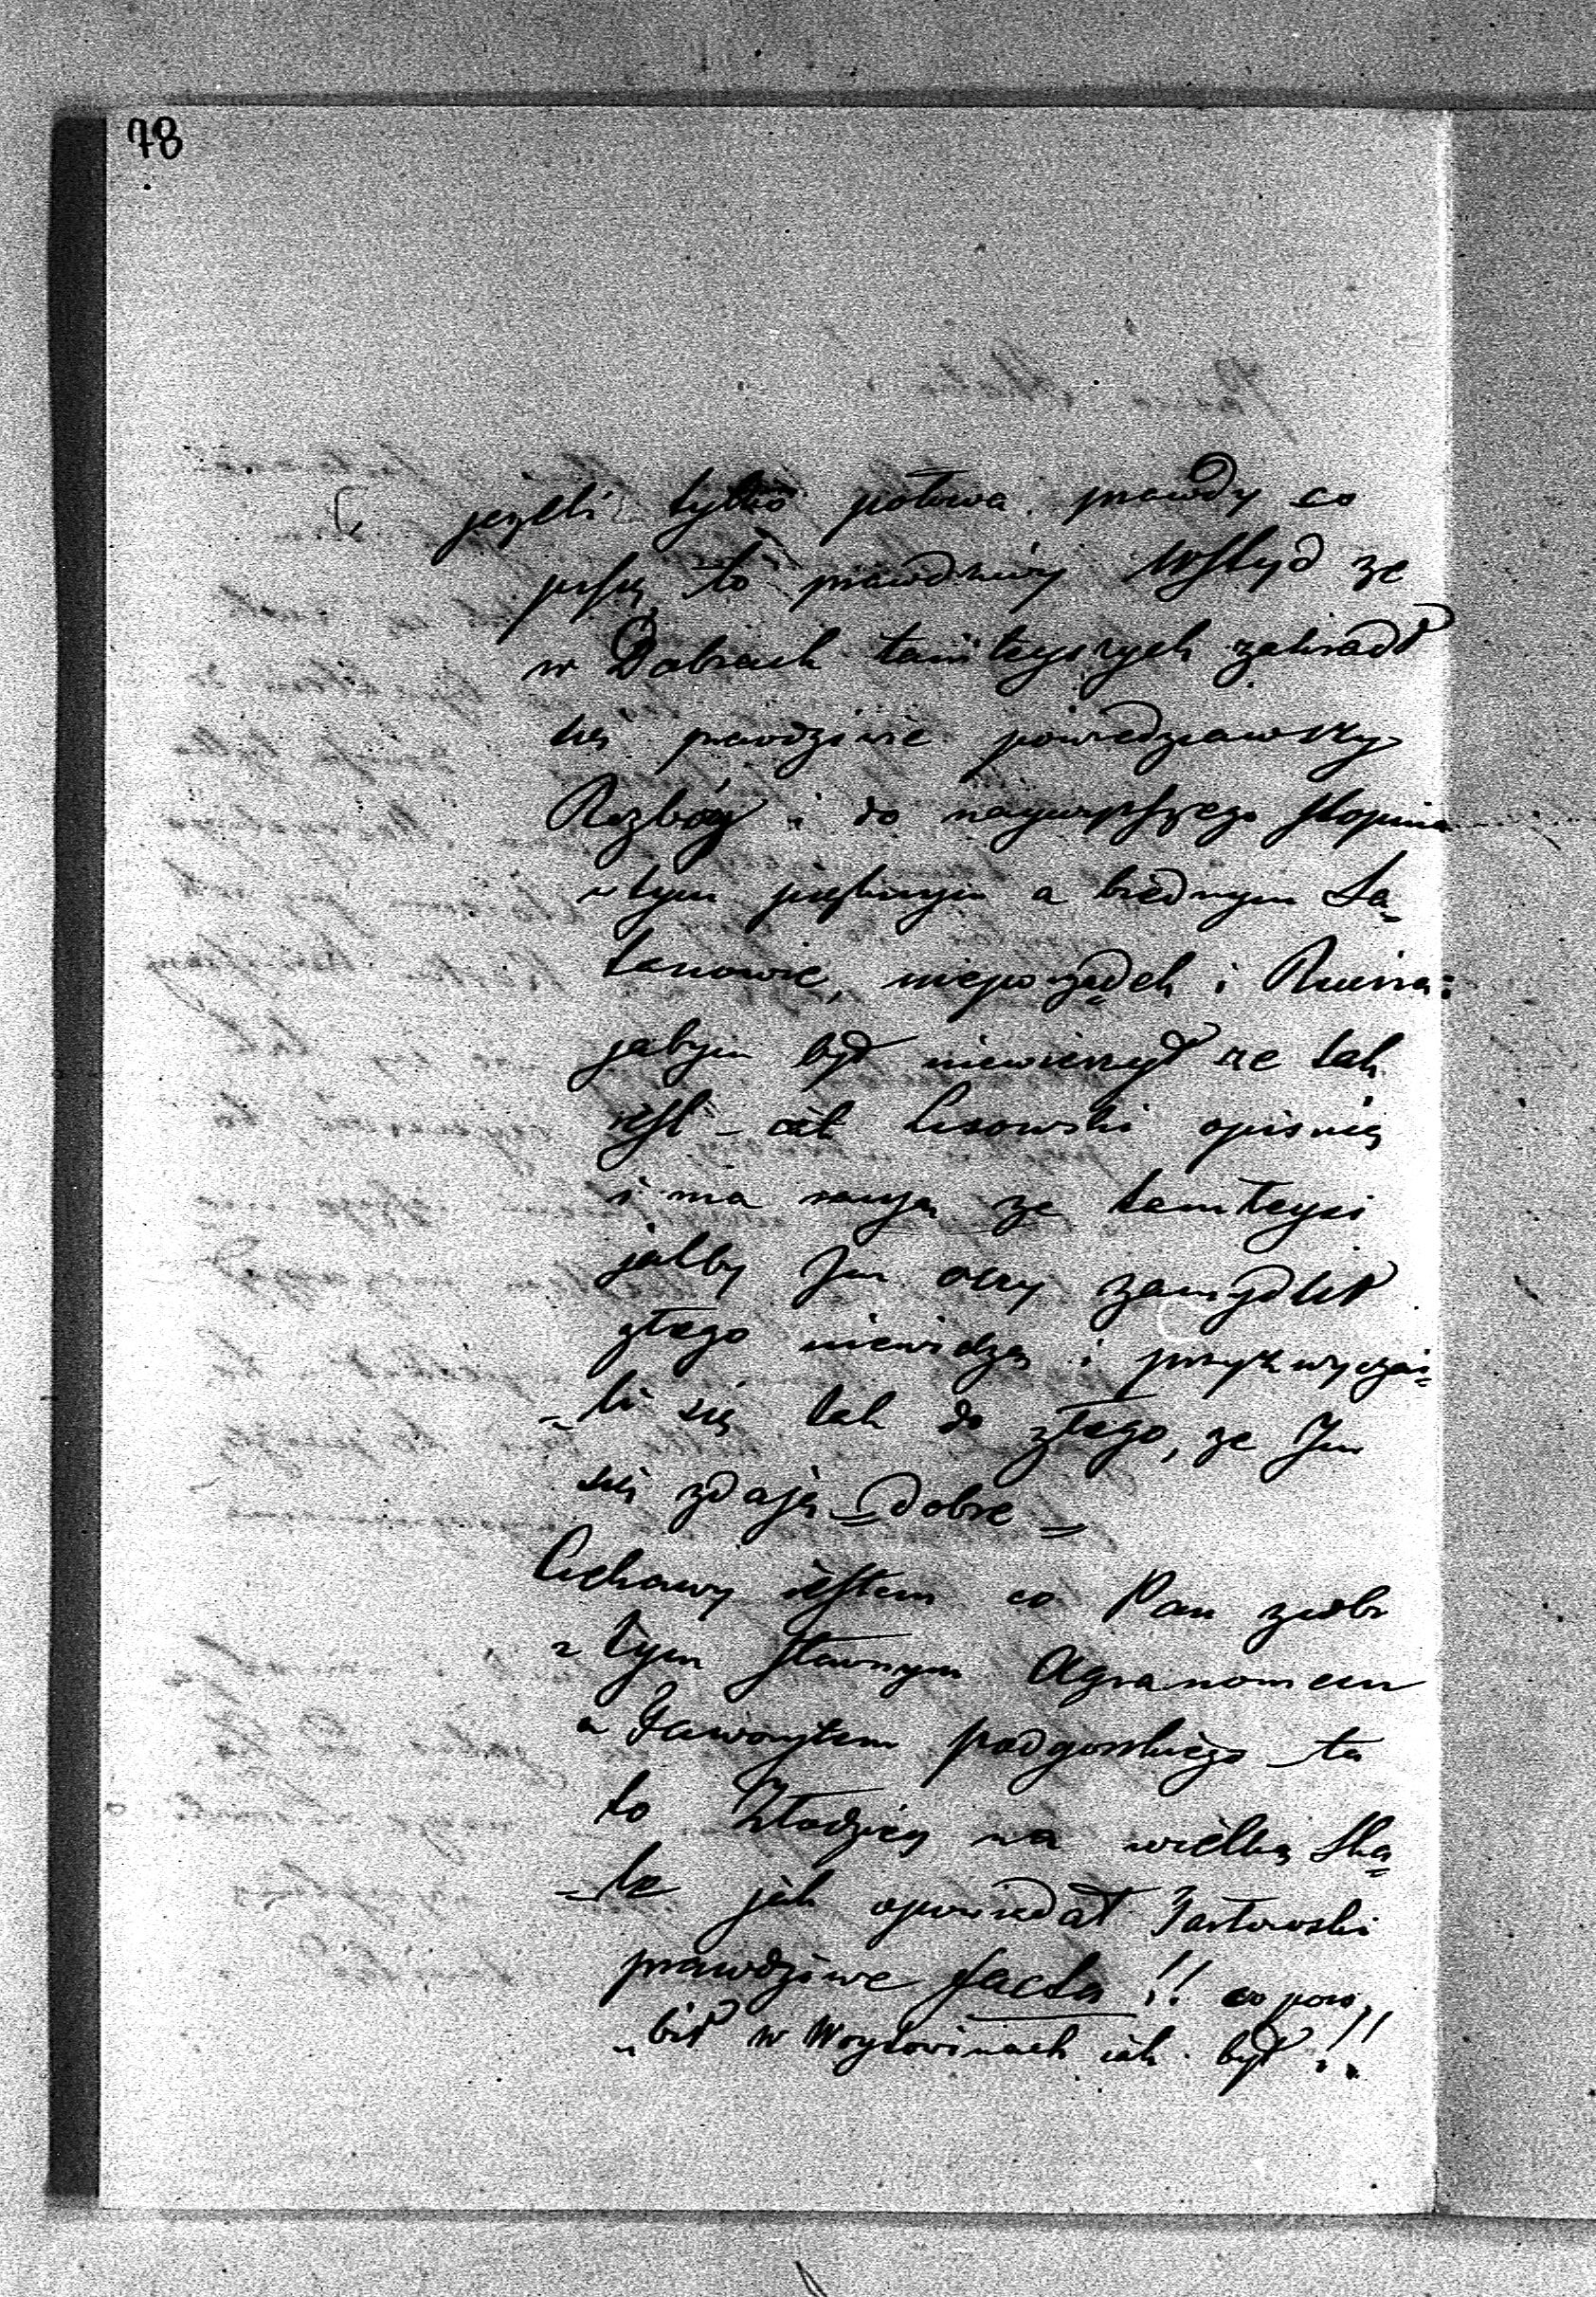 78
jeżeli tylko połowa prawdy co
piszą to prawdziwy wstyd ze
w Dobrach tamteyszych zakradł
się prawdziwie powiedziawszy
Rozbóy i do naywyższego stopnia
w tym pięknym a biednym Sa=
tanowie, nieporządek i Ruina:
jabym był niewierzył ze tak
iest – ale Lisowski opisuię
i ma racyą ze tamteysi
jakby Im oczy zamydlił
złego niewidzą i przyzwyczai=
=li się tak do złego, ze Im
się zdają = dobre =
Ciekawy iestem co Pan zrobi
z tym sławnym Agronomem
a Faworytem podgorskiego ta
to Złodziey na wielką Ska=
=lę jak opowiedał Jastowski
prawdziwe facta!! co poro,
„bił w Woytowinach iak był!!